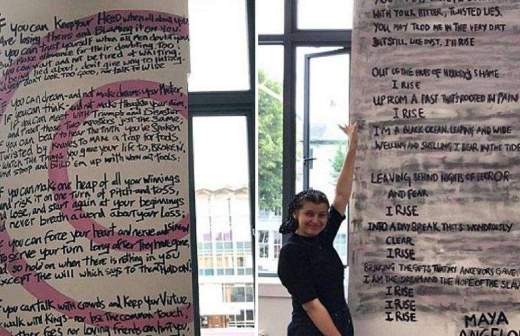 IF YOU CAN KEEP your HEAD when all about you
ARE losing theirs and BLaming it on YOU.
IF you can Trust yourself when all men doubt you,
But make allowance for their doubting TOO;
IF you can wait and not be tired of waiting,
being lied about, don't give way to
don't look TOO GOOD, nor talk TOO WISE
IF you can dream-and not make dreams your Master;
IF you can think-and not make Thoughts your aim,
IF you can meet with Triumph and Disaster
and treat those Two Just the Same,
IF you can bear to hear the Truth you've SPOKEN
TWISTED By KNAVES to MAKE a trap for FOOLS
WATCH THE THINGS you gave your life to, BROKEN,
and stoop and BUILD em up with worn out TOOLS;
IF you can make one heap of all your winnings
and risk it on one TURN of Pitch and toss,
and Lose, and start again at your beginnings
and never breath a word about your loss;
IF you can force your heart and nerve and Sinew
TO serve your turn long after They have gone,
and so hold on when there is nothing in you
EXCEPT THE Will which says to THEM HOLD ON
IF you can talk with crowds and keep your Virtue,
walk with Kings- nor lose the Common Touch,
foes nor Loving friends can hurt you,
WITH YOUR BITTER, TWISTED LIES.
YOU MAY TROD ME IN THE VERY DIRT
BUT STILL, LIKE DUST, I'LL RISE
OUT OF THE HUTS OF HISTORY'S SHAME
I RISE
UP FROM A PAST THAT'S ROOTED IN PAIN
I RISE
I'M A BLACK OCEAN, LEAPING AND WIDE
WELLING AND SWELLING I BEAR IN THE TIDE
LEAVING BEHIND NIGHTS OF TERROR
AND FEAR
I RISE
INTO A DAYBREAK THAT'S WONDROUSLY
CLEAR
I RISE
BRINGING THE GIFTS THAT MY ANCESTORS GAVE
I AM THE DREAM AND THE HOPE OF THE SLAVE
I RISE
I RISE
I RISE
MAYA
ANGELO